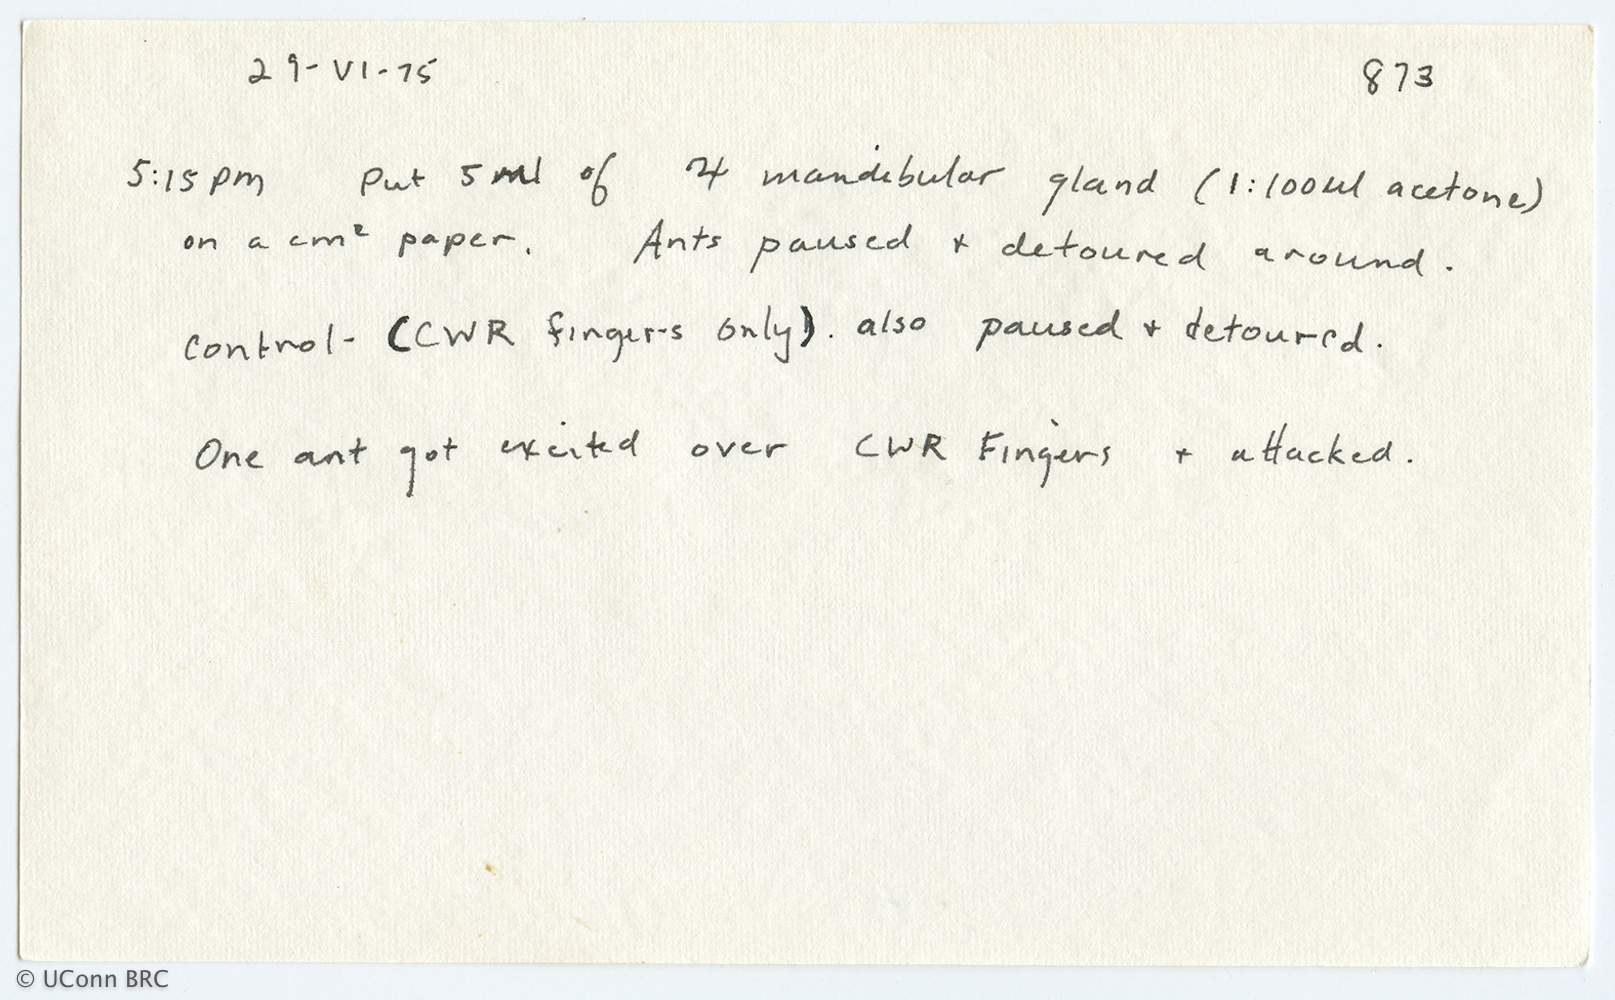 29-VI-75 873
5:15pm Put 5 μl of ♃ mandibular gland (1:100μl acetone)
on a cm² paper. Ants paused + detoured around.
control- (CWR fingers only). also paused + detoured.
One ant got excited over CWR Fingers + attacked.
© UConn BRC